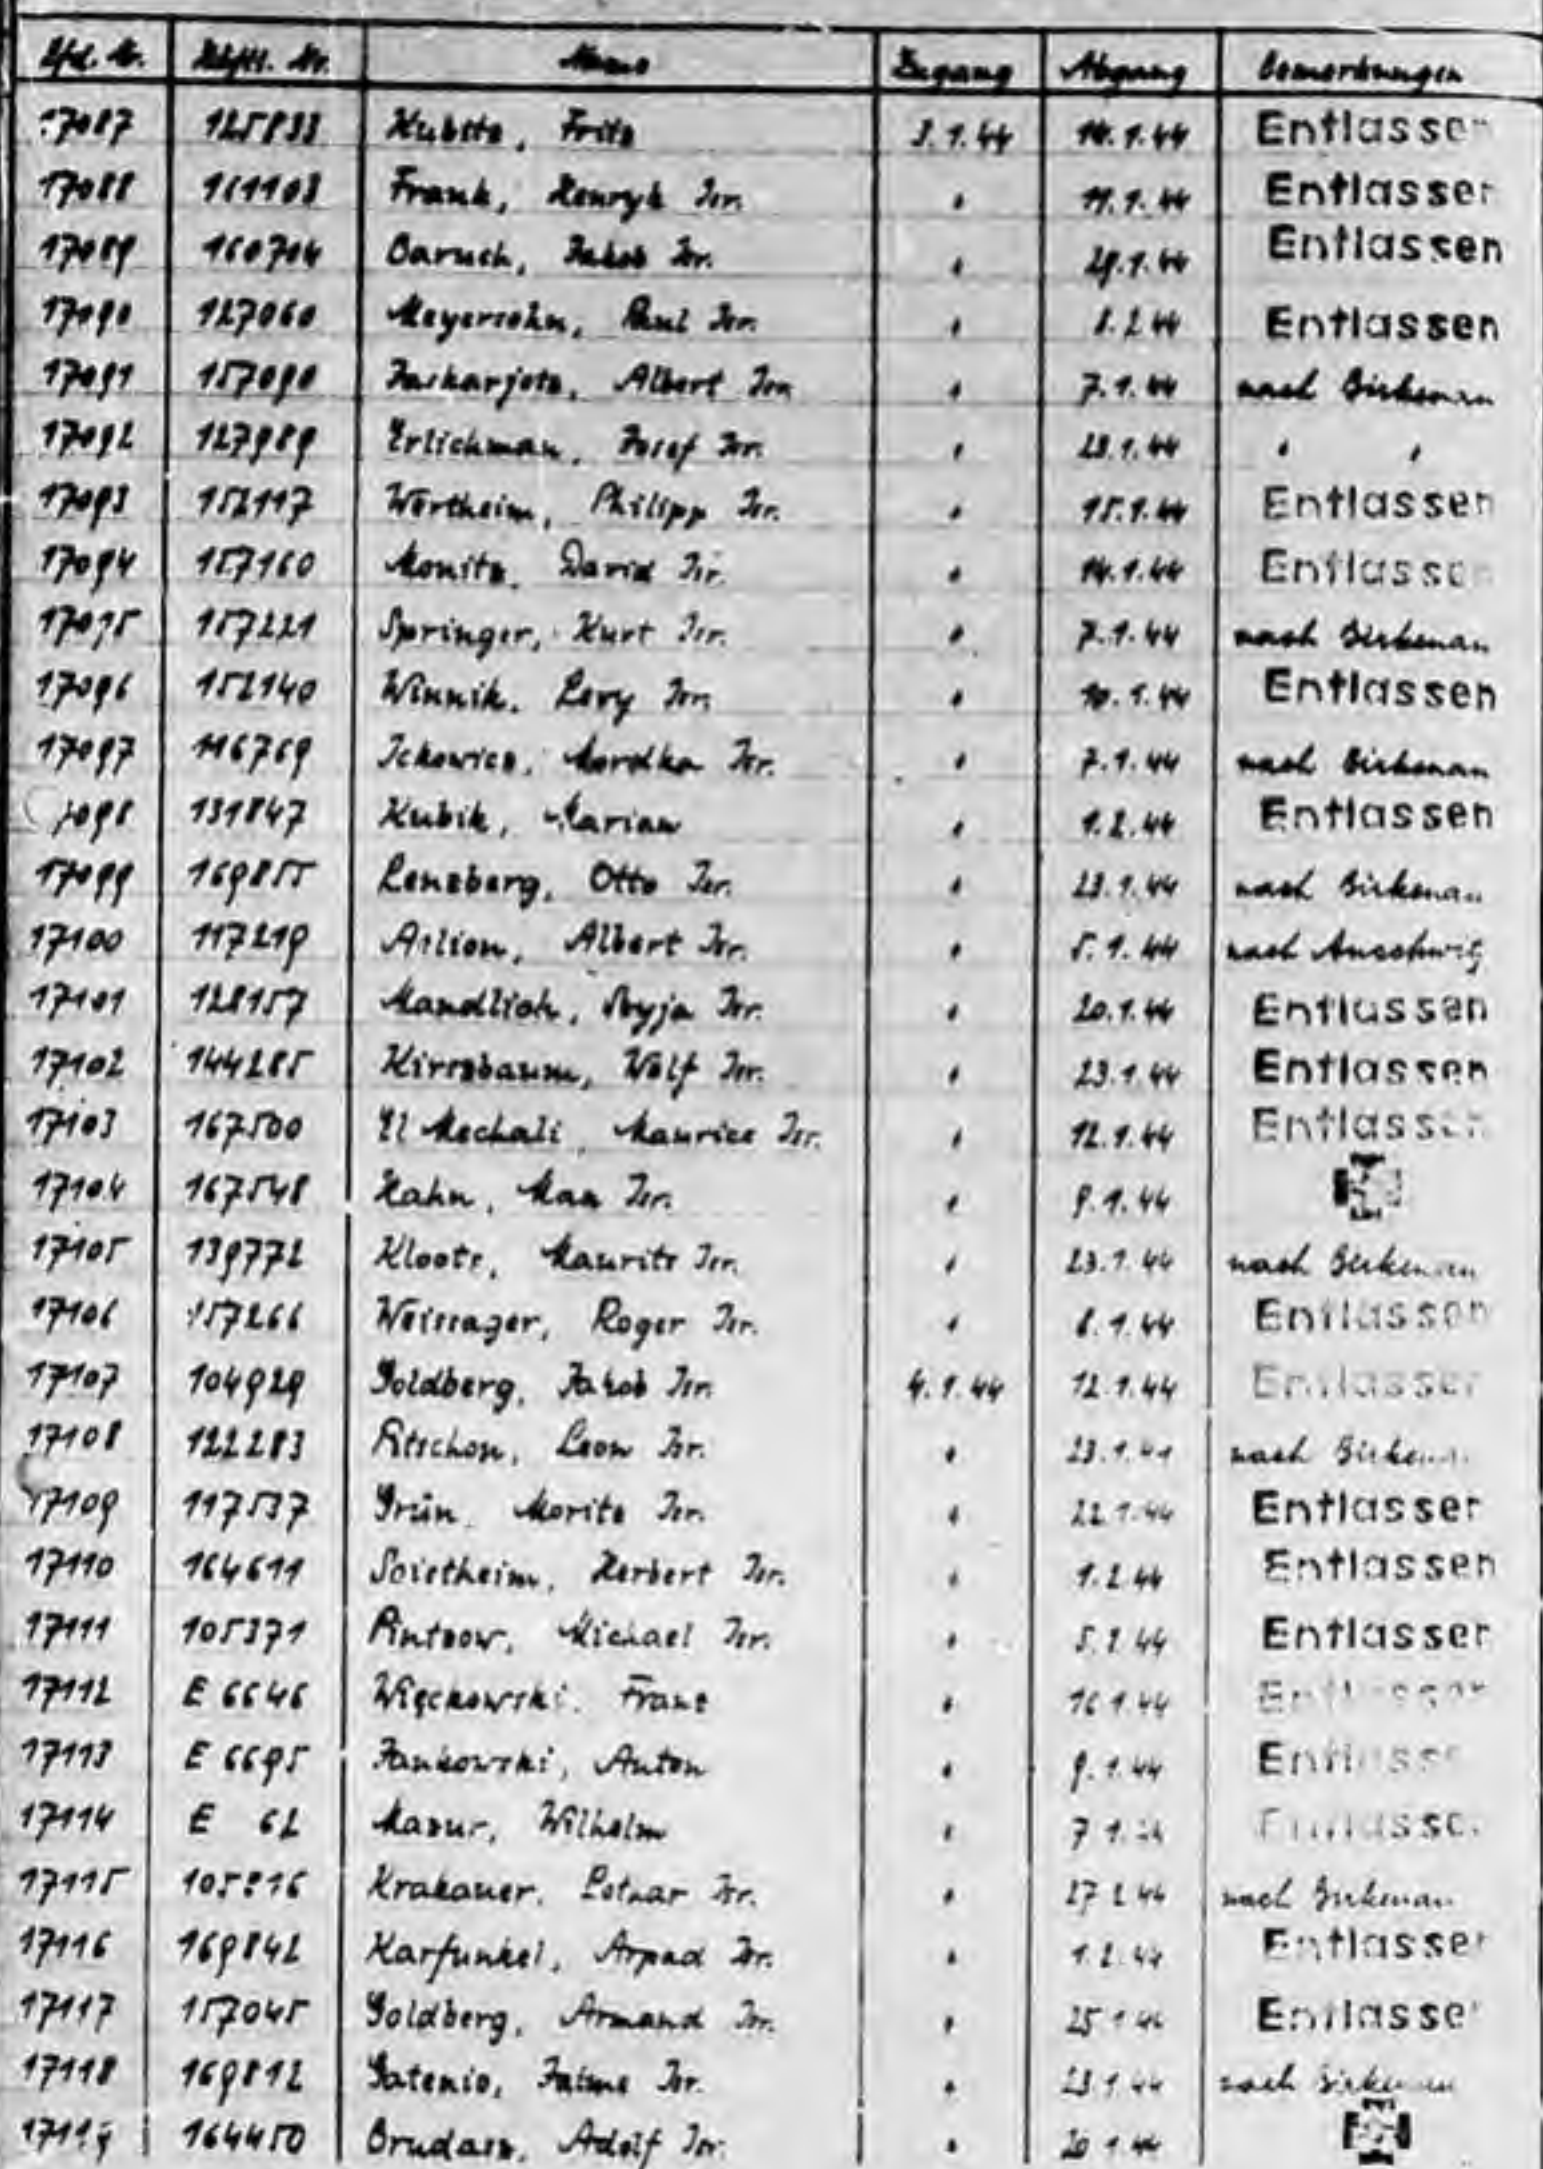 Lfd. Nr. Häftl. Nr. Name Zugang Abgang Bemerkungen
17087 125833 Kubitz, Fritz 3.1.44 14.1.44 Entlassen
17088 161103 Frank, Henryk Isr. " 11.1.44 Entlassen
17089 160704 Baruch, Jakob Isr. " 29.1.44 Entlassen
17090 127060 Meyersohn, Paul Isr. " 8.2.44 Entlassen
17091 157090 Albert Isr. " 7.1.44 nach Birkenau
17092 127989 Erlichman, Josef Isr. " 23.1.44 " "
17093 152117 Wertheim, Philipp Isr. " 15.1.44 Entlassen
17094 157160 Monitz, David Isr. " 14.1.44 Entlassen
17095 157221 Springer, Kurt Isr. " 7.1.44 nach Birkenau
17096 152140 Winnik, Levy Isr. " 10.1.44 Entlassen
17097 116769 Ickowicz, Mordka Isr. " 7.1.44 nach Birkenau
17098 131847 Kubik, Marian " 1.2.44 Entlassen
17099 169855 Lenzberg, Otto Isr. " 23.1.44 nach Birkenau
17100 117219 Aslion, Albert Isr. " 5.1.44 nach Auschwitz
17101 128157 Mandlich, Isr. " 20.1.44 Entlassen
17102 144285 Kirszbaum, Wolf Isr. " 23.1.44 Entlassen
17103 167500 El Mechali, Maurice Isr. " 12.1.44 Entlassen
17104 167548 Hahn, Max Isr. " 9.1.44
17105 139772 Kloots, Maurits Isr. " 23.1.44 nach Birkenau
17106 157266 Weissager, Roger Isr. " 8.1.44 Entlassen
17107 104929 Goldberg, Jakob Isr. 4.1.44 12.1.44 Entlassen
17108 122283 Pitschon, Leon Isr. " 23.1.44 nach Birkenau
17109 117537 Grün, Moritz Isr. " 22.1.44 Entlassen
17110 164611 Soistheim, Herbert Isr. " 1.2.44 Entlassen
17111 105371 Pintzow, Michael Isr. " Entlassen
17112 E 6646 Więckowski, Franz " 16.1.44 Entlassen
17113 E 6695 Jankowski, Anton " 9.1.44 Entlassen
17114 E 62 Mazur, Wilhelm " 7.1.44 Entlassen
17115 Krakauer, Lothar Isr. " 27.2.44 nach Birkenau
17116 169842 Karfunkel, Arpad Isr. " 1.2.44 Entlassen
17117 157045 Goldberg, Armand Isr. " 25.1.44 Entlassen
17118 169812 Gatenio, Isr. " 23.1.44 nach Birkenau
17119 164450 Brudasz, Adolf Isr. " 20.1.44